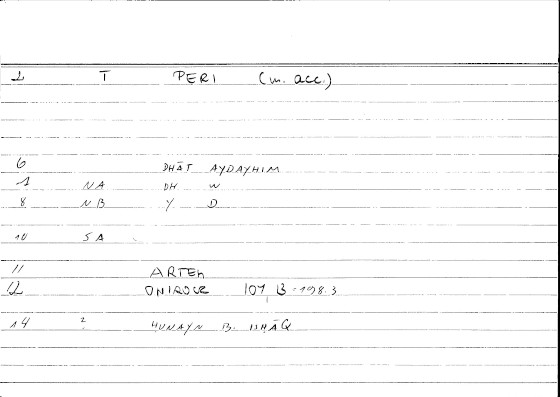 1 T PERI (m. acc.)
6 DHĀT AYDAYHIM
1 NA DH W
8 NB Y D
10 SA
11 ARTEM
12 ONIROCR 107, 13 - 198.3
14 ? HUNAYN B. ISHĀQ